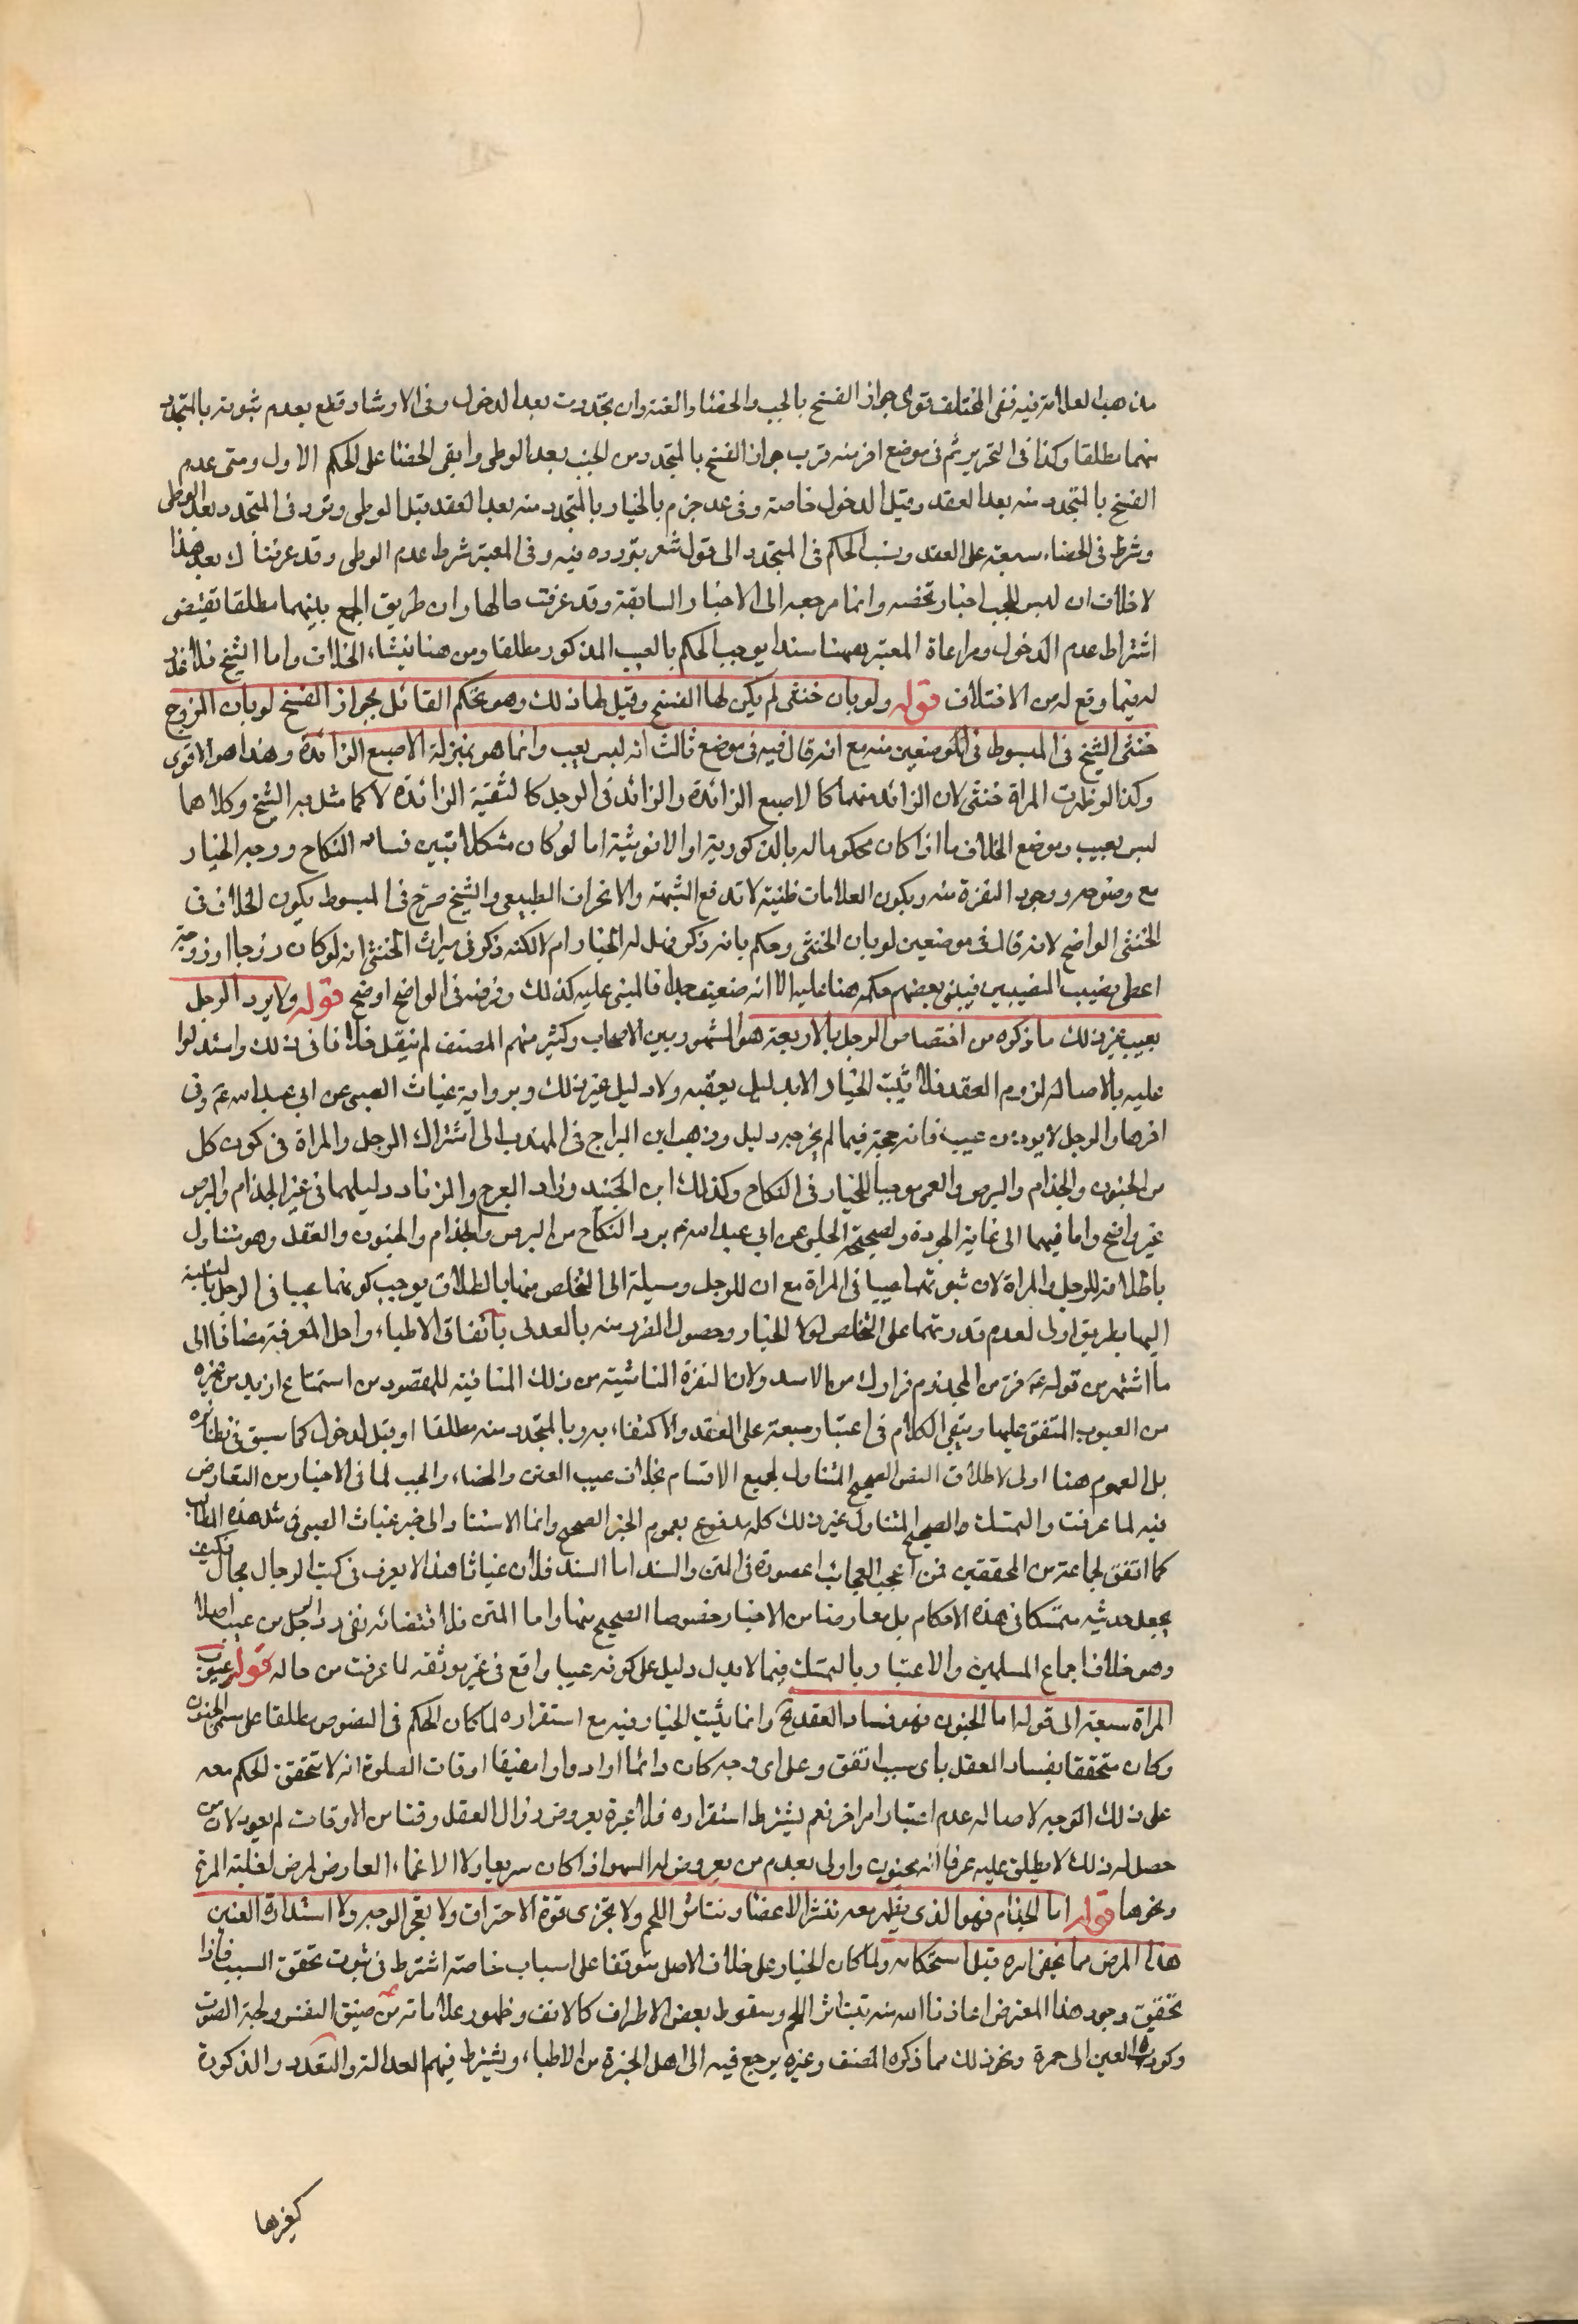 مذهب العلامة فيه ففى المختلف قوى جواز الفسخ بالجب والخصاء والعنه وان تجددت بعد الدخول وفى الارشاد قطع بعدم ثبوته بالمتجدد
منهما مطلقا وكذا فى التحرير ثم فى موضع اخر منه قرب جواز الفسخ بالمتجدد من الجب بعد الوطى وابقى الخصا على الحكم الاول ومتى عدم
الفسخ بالمتجدد منه بعد العقد وقبل الدخول خاصة وفى عد جزم بالخيار بالمتجدد منه بعد العقد قبل الوطى وتردد فى المتجدد بعد الوطى
وشرط فى الخصاء سبقه على العقد ونسب الحكم فى المتجدد الى قول مشعر بتردده فيه وفى المعتبر شرط عدم الوطى وقد عرفناك بعد هذا
لا خلاف ان ليس للجب اخبار تخصه وانما مرجعه الى الاخبار السابقة وقد عرفت حالها وان طريق الجمع بينهما مطلقا تقتضى
اشتراط عدم الدخول ومراعاة المعتبر بعمهنا سندا يوجب الحكم بالعيب المذكور مطلقا ومن هنا نيشاء الخلاف واما الشيخ فلا عذر
له فيما وقع له من الاختلاف قوله ولو بان خنثى لم يكن لها الفسخ وقيل لها ذلك وهو تحكم القائل بجواز الفسخ لو بان الزوج
خنثى الشيخ فى المبسوط فى الموضعين منه مع انه قال فيه فى موضع ثالث انه ليس بعيب وانما هو بمنزلة الاصبع الزائدة وهذا هو الاقوى
وكذا لو ظهرت المراة خنثى لان الزائد منهما كالاصبع الزائدة والزائد فى الرجل كالثقبة الزائدة لا كما مثل به الشيخ وكلاهما
ليس بعيب وموضع الخلاف ما اذا كان محكوما له بالذكورية او الانوثية اما لو كان مشكلا تبين فساد النكاح ووجه الخيار
مع وضوحه وجود النفرة منه ويكون العلامات ظنية لا تدفع الشبهة والانحراف الطبيعى والشيخ صرح فى المبسوط بكون الخلاف فى
الخنثى الواضح لانه قال فى موضعين لو بان الخنثى وحكم بانه ذكر فهل له الخيار ام لا لكنه ذكر فى ميراث الخنثى انه لو كان زوجا او زوجة
اعطى نصيب النصيبين فيبنى بعضهم حكمه هنا عليه الا انه ضعيف جدا فالمبنى عليه كذلك وفرضه فى الواضح اوضح قوله ولا يرد الرجل
بعيب غير ذلك ما ذكره من اختصاص الرجل بالاربعة هو المشهور بين الاصحاب وكثير منهم المصنف لم ينقل خلافا فى ذلك واستدلوا
عليه بالاصالة لزوم العقد فلا يثبت الخيار الا بدليل يعقبه ولا دليل غير ذلك وبرواية غياث الضبى عن ابى عبد الله ع وفى
اخرها والرجل لا يرد من عيب فانه حجة فيما لم يخرجه دليل وذهب ابن البراج فى المهذب الى اشتراك الرجل والمراة فى كون كل
من الجنون والجذام والبرص والعمى موجبا للخيار فى النكاح وكذلك ابن الجنيد وزاد العرج والزنا ودليلهما فى غير الجذام والبرص
غير واضح واما فيهما الى غاية الجودة ولصحيحة الحلبى عن ابى عبد الله ع يرد النكاح من البرص والجذام والجنون والعفل وهو متناول
باطلاقه للرجل والمراة لان ثبوتهما عيبا فى المراة مع ان للرجل وسيلة الى التخلص منها بالطلاق يوجب كونهما عيبا فى الرجل بالنسبة
اليها بطريق اولى لعدم قدرتهما على التخلص لولا الخيار وحصول الضرر منه بالعدى باتفاق الاطباء واهل المعرفة مضافا الى
ما اشتهر من قوله ع فر من المجذوم فرارك من الاسد ولان النفرة الناشية من ذلك المنافية للمقصود من استمتاع ازيد من غيره
من العيوب المتفق عليها ويبقى الكلام فى اعتبار سبقه على العقد والاكتفاء به وبالمتجدد منه مطلقا او قبل الدخول كما سبق فى نظائره
بل العموم هنا اولى لاطلاق النص الصحيح المتناول لجميع الاقسام بخلاف عيب العنن والخصاء والجب لما فى الاخبار من التعارض
فيه لما عرفت والتمسك بالصحيح المتناول غير ذلك كله مدفوع بعموم الخبر الصحيح وانما الاستناد الى خبر غياث الضبى فى مثل هذه المطالب
كما اتفق لجماعة من المحققين فمن اعجب العجائب اعصوره فى المتن والسند اما السند فلان غياثا هذا لا يعرف فى كتب الرجال بحال فكيف
يجعل حديثه متمسكا فى هذه الاحكام بل معارضا من الاخبار خصوصا الصحيح منها واما المتن فلاقتضائه نفى رد الرجل من عيب اصلا
وهو خلاف اجماع المسلمين والاعتبار بالتمسك فيما لا يدل دليل على كونه عيبا واقع فى غير موثقه لما عرفت من حاله قوله عيوب
المراة سبعة الى قوله اما الجنون فهو فساد العقد تح وانما يثبت الخيار فيه مع استقراره لما كان الحكم فى النصوص مطلقا على مسمى الجنون
وكان متحققا بفساد العقل باى سبب اتفق وعلى اى وجه كان دائما او ادوارا مضيقا اوقات الصلوة انه لا يتحقق الحكم معه
على ذلك الوجه لاصالة عدم اعتبار امر اخر نعم يشترط استقراره فلا عبرة بعروض زوال العقل وقتا من الاوقات لم يعود لان من
حصل له ذلك لا يطلق عليه عرفا انه مجنون واولى بعدم من يعرض له السهو اذا كان سريعا ولا الاغماء العارض لمرض لغلبة المرة
ونحوها قوله اما الجذام فهو الذى يظهر معه تنشر الاعضاء وتناثر اللحم ولا تجزى قوة الاحتراق ولا تعجر الوجه ولا استدارة العين
هذا المرض مما يخفى امره قبل استحكامه ولما كان الخيار على خلاف الاصل متوقفا على اسباب خاصة اشترط فى ثبوته تحقق السبب فاذا
تحقيق وجود هذا المعترض اعاذنا الله منه بتناثر اللحم وسقوط بعض الاطراف كالانف وظهور علاماته من ضيق النفس ولحة الصوت
وكودة العين الى حمرة ونحو ذلك مما ذكره المصنف وغيره يرجع فيه الى اهل الخبرة من الاطباء ويشترط فيهم العدالة والتعدد والذكورة
كغيرها